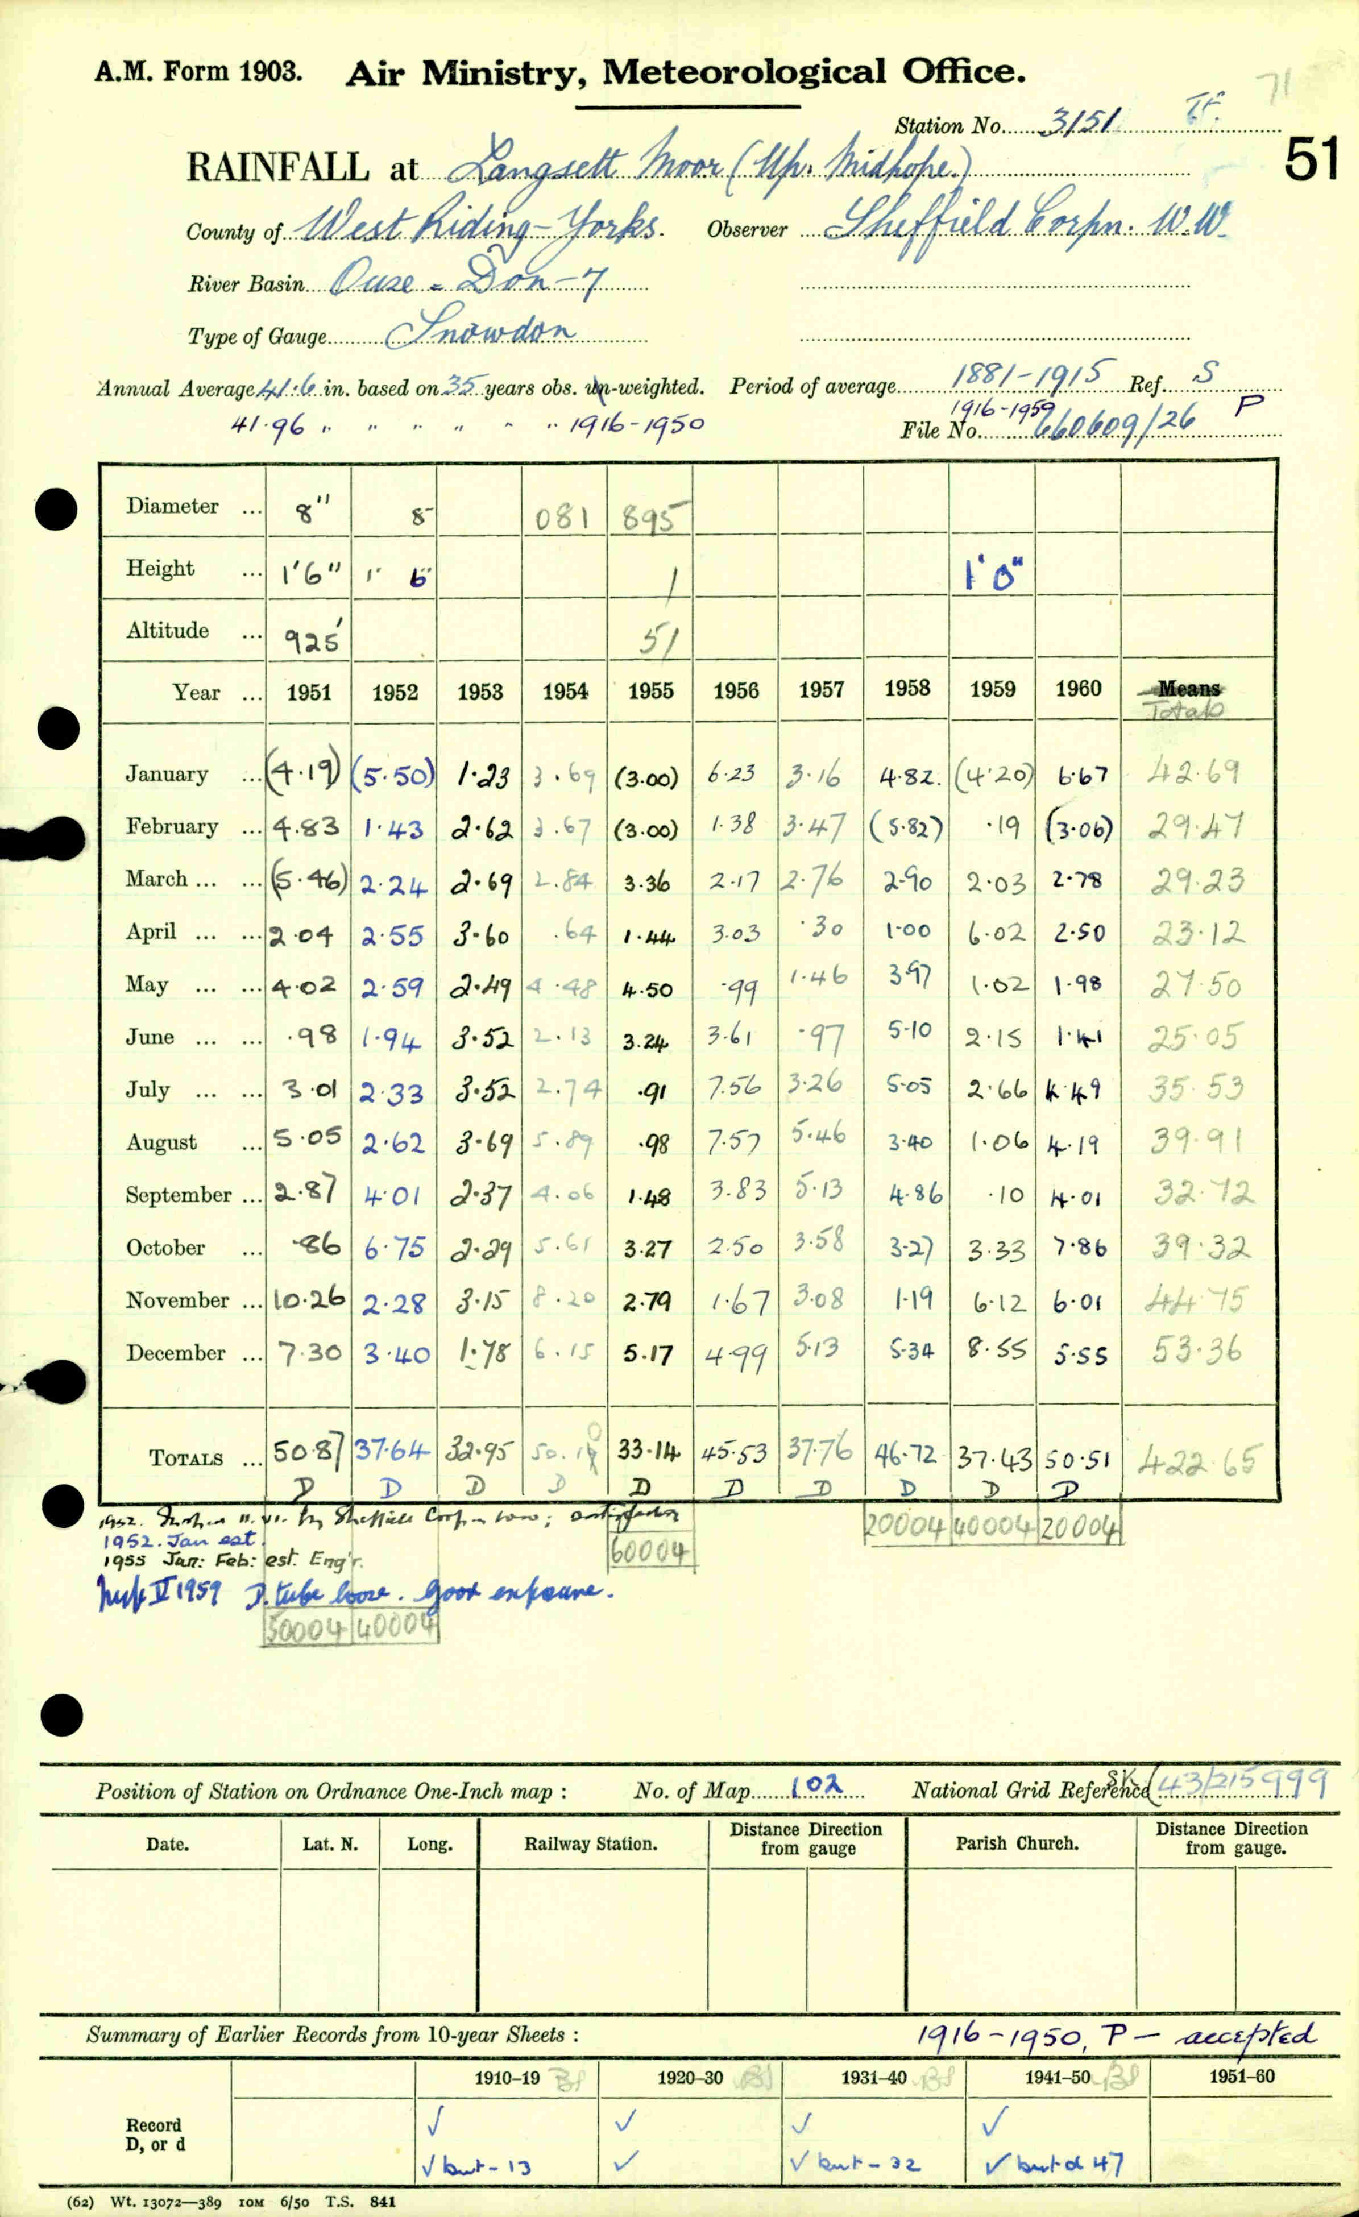 A.M. Form 1903. Air Ministry, Meteorological Office. 71
Station No. 3151 TF.
RAINFALL at Langsett Moor (Up. Midhope.) 51
County of West Riding - Yorks. Observer Sheffield Corpn. W.W.
River Basin Ouse = Don - 7
Type of Gauge Snowdon
Annual Average 41.6 in. based on 35 years obs. un-weighted. Period of average 1881-1915 Ref. S
41.96 " " " " " " 1916-1950 1916-1959 P
File No. 660609/26
Diameter ... 8" 8" 081 895
Height ... 1'6" 1' 6" 1 1'0"
Altitude ... 925' 51
Year ... 1951 1952 1953 1954 1955 1956 1957 1958 1959 1960 Means
Totals
January ... (4.19) (5.50) 1.23 3.69 (3.00) 6.23 3.16 4.82 (4.20) 6.67 42.69
February ... 4.83 1.43 2.62 3.67 (3.00) 1.38 3.47 (5.82) .19 (3.06) 29.47
March ... ... (5.46) 2.24 2.69 2.84 3.36 2.17 2.76 2.90 2.03 2.78 29.23
April ... ... 2.04 2.55 3.60 .64 1.44 3.03 .30 1.00 6.02 2.50 23.12
May ... ... 4.02 2.59 2.49 4.48 4.50 .99 1.46 3.97 1.02 1.98 27.50
June ... ... .98 1.94 3.52 2.13 3.24 3.61 .97 5.10 2.15 1.41 25.05
July ... ... 3.01 2.33 3.52 2.74 .91 7.56 3.26 5.05 2.66 4.49 35.53
August ... 5.05 2.62 3.69 5.89 .98 7.57 5.46 3.40 1.06 4.19 39.91
September ... 2.87 4.01 2.37 4.06 1.48 3.83 5.13 4.86 .10 4.01 32.72
October ... .86 6.75 2.29 5.61 3.27 2.50 3.58 3.27 3.33 7.86 39.32
November ... 10.26 2.28 3.15 8.20 2.79 1.67 3.08 1.19 6.12 6.01 44.75
December ... 7.30 3.40 1.78 6.15 5.17 4.99 5.13 5.34 8.55 5.55 53.36
TOTALS ... 50.87 37.64 32.95 50.10 33.14 45.53 37.76 46.72 37.43 50.51 422.65
D D D D D D D D D D
1952. by Sheffield Corpn satisfactory
20004 40004 20004
1952. Jan est.
1955 Jan: Feb: est. Eng'r. 60004
Insp V 1959 D. tube loose. Good exposure.
50004 40004
Position of Station on Ordnance One-Inch map : No. of Map 102 National Grid Reference SK(43/215999
Date. Lat. N. Long. Railway Station. Distance Direction from gauge Parish Church. Distance Direction from gauge.
Summary of Earlier Records from 10-year Sheets : 1916-1950, P - accepted
1910-19 1920-30 1931-40 1941-50 1951-60
Record ✓ ✓ ✓ ✓
D, or d ✓ but - 13 ✓ ✓ but - 32 ✓ but d 47
(62) Wt. 13072—389 10M 6/50 T.S. 841